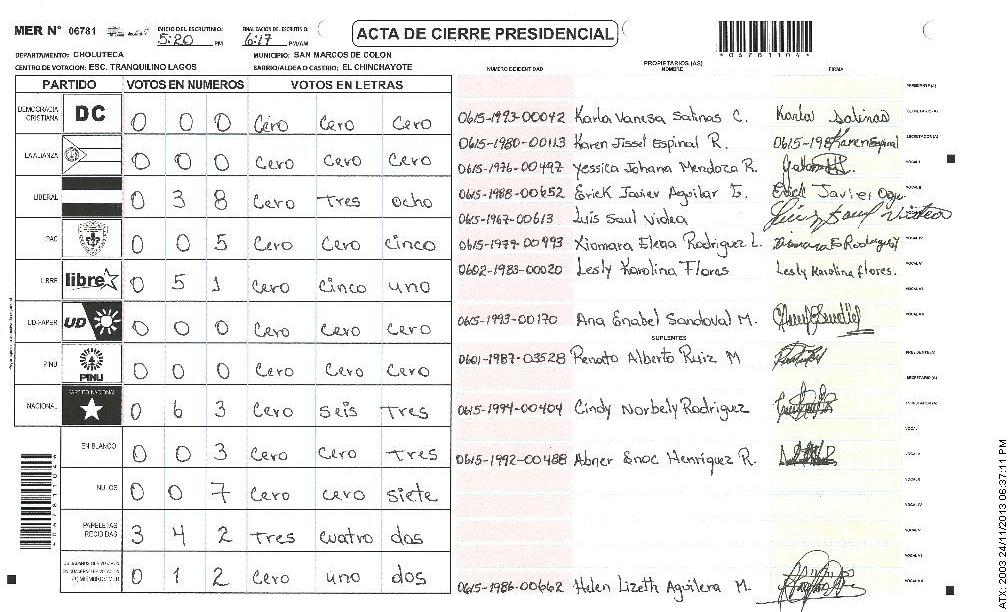 MER N° 06781 INICIO DEL ESCRUTINIO: 5:20 PM FINALIZACION DEL ESCRUTINIO: 6:17 PM/AM
ACTA DE CIERRE PRESIDENCIAL
DEPARTAMENTO: CHOLUTECA MUNICIPIO: SAN MARCOS DE COLON
CENTRO DE VOTACION: ESC. TRANQUILINO LAGOS BARRIO/ALDEA O CASERIO: EL CHINCHAYOTE
PARTIDO VOTOS EN NUMEROS VOTOS EN LETRAS
DEMOCRACIA CRISTIANA DC 0 0 0 Cero Cero Cero
LA ALIANZA 0 0 0 Cero Cero Cero
LIBERAL 0 3 8 Cero Tres ocho
PAC 0 0 5 Cero Cero cinco
LIBRE libre 0 5 1 Cero cinco uno
UD-FAPER UD 0 0 0 Cero Cero Cero
PINU PINU 0 0 0 Cero Cero Cero
NACIONAL PARTIDO NACIONAL 0 6 3 Cero seis Tres
EN BLANCO 0 0 3 Cero Cero Tres
NULOS 0 0 7 Cero cero siete
PAPELETAS RECIBIDAS 3 4 2 Tres cuatro dos
0 1 2 Cero uno dos
NUMERO DE IDENTIDAD PROPIETARIOS (AS) NOMBRE FIRMA
PRESIDENTE(A)
0615-1993-00042 Karla Vanesa Salinas C. Karla Salinas
0615-1980-00113 Karen Jissel Espinal R. Karen Espinal
0615-1976-00497 Yessica Johana Mendoza R.
0615-1988-00652 Erick Javier Aguilar I. Erick Javier
0615-1967-00613 Luis Saul Videa
0615-1977-00493 Xiomara Elena Rodriguez L.
0602-1983-00020 Lesly Karolina Flores Lesly Karolina flores.
0615-1993-00170 Ana Enabel Sandoval M.
SUPLENTES
0601-1987-03528 Renato Alberto Ruiz M
0615-1994-00404 Cindy Norbely Rodriguez
0615-1992-00488 Abner Enoc Henriquez R.
0615-1986-00662 Helen Lizeth Aguilera M.
ATX 2003 24/11/2013 06:37:11 PM